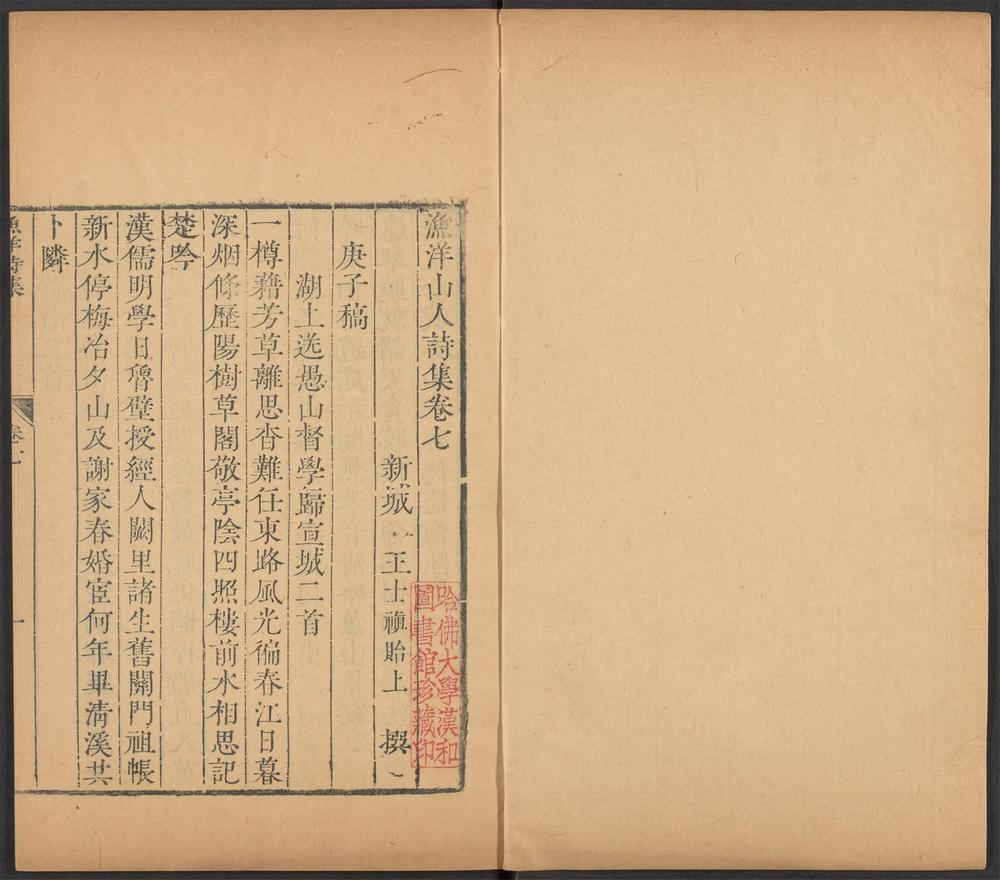 漁洋山人詩集卷七
新城 王士禛貽上 撰
庚子稿
湖上送愚山督學歸宣城二首
一樽藉芳草離思杳難任東路風光徧春江日暮
深烟條歷陽樹草閣敬亭陰四照樓前水相思記
楚吟
漢儒明學日魯壁授經人闕里諸生舊關門祖帳
新水停梅冶夕山及謝家春婚宦何年畢淸溪共
卜隣
漁洋詩集
卷七
一
哈佛大學漢和
圖書館珍藏印